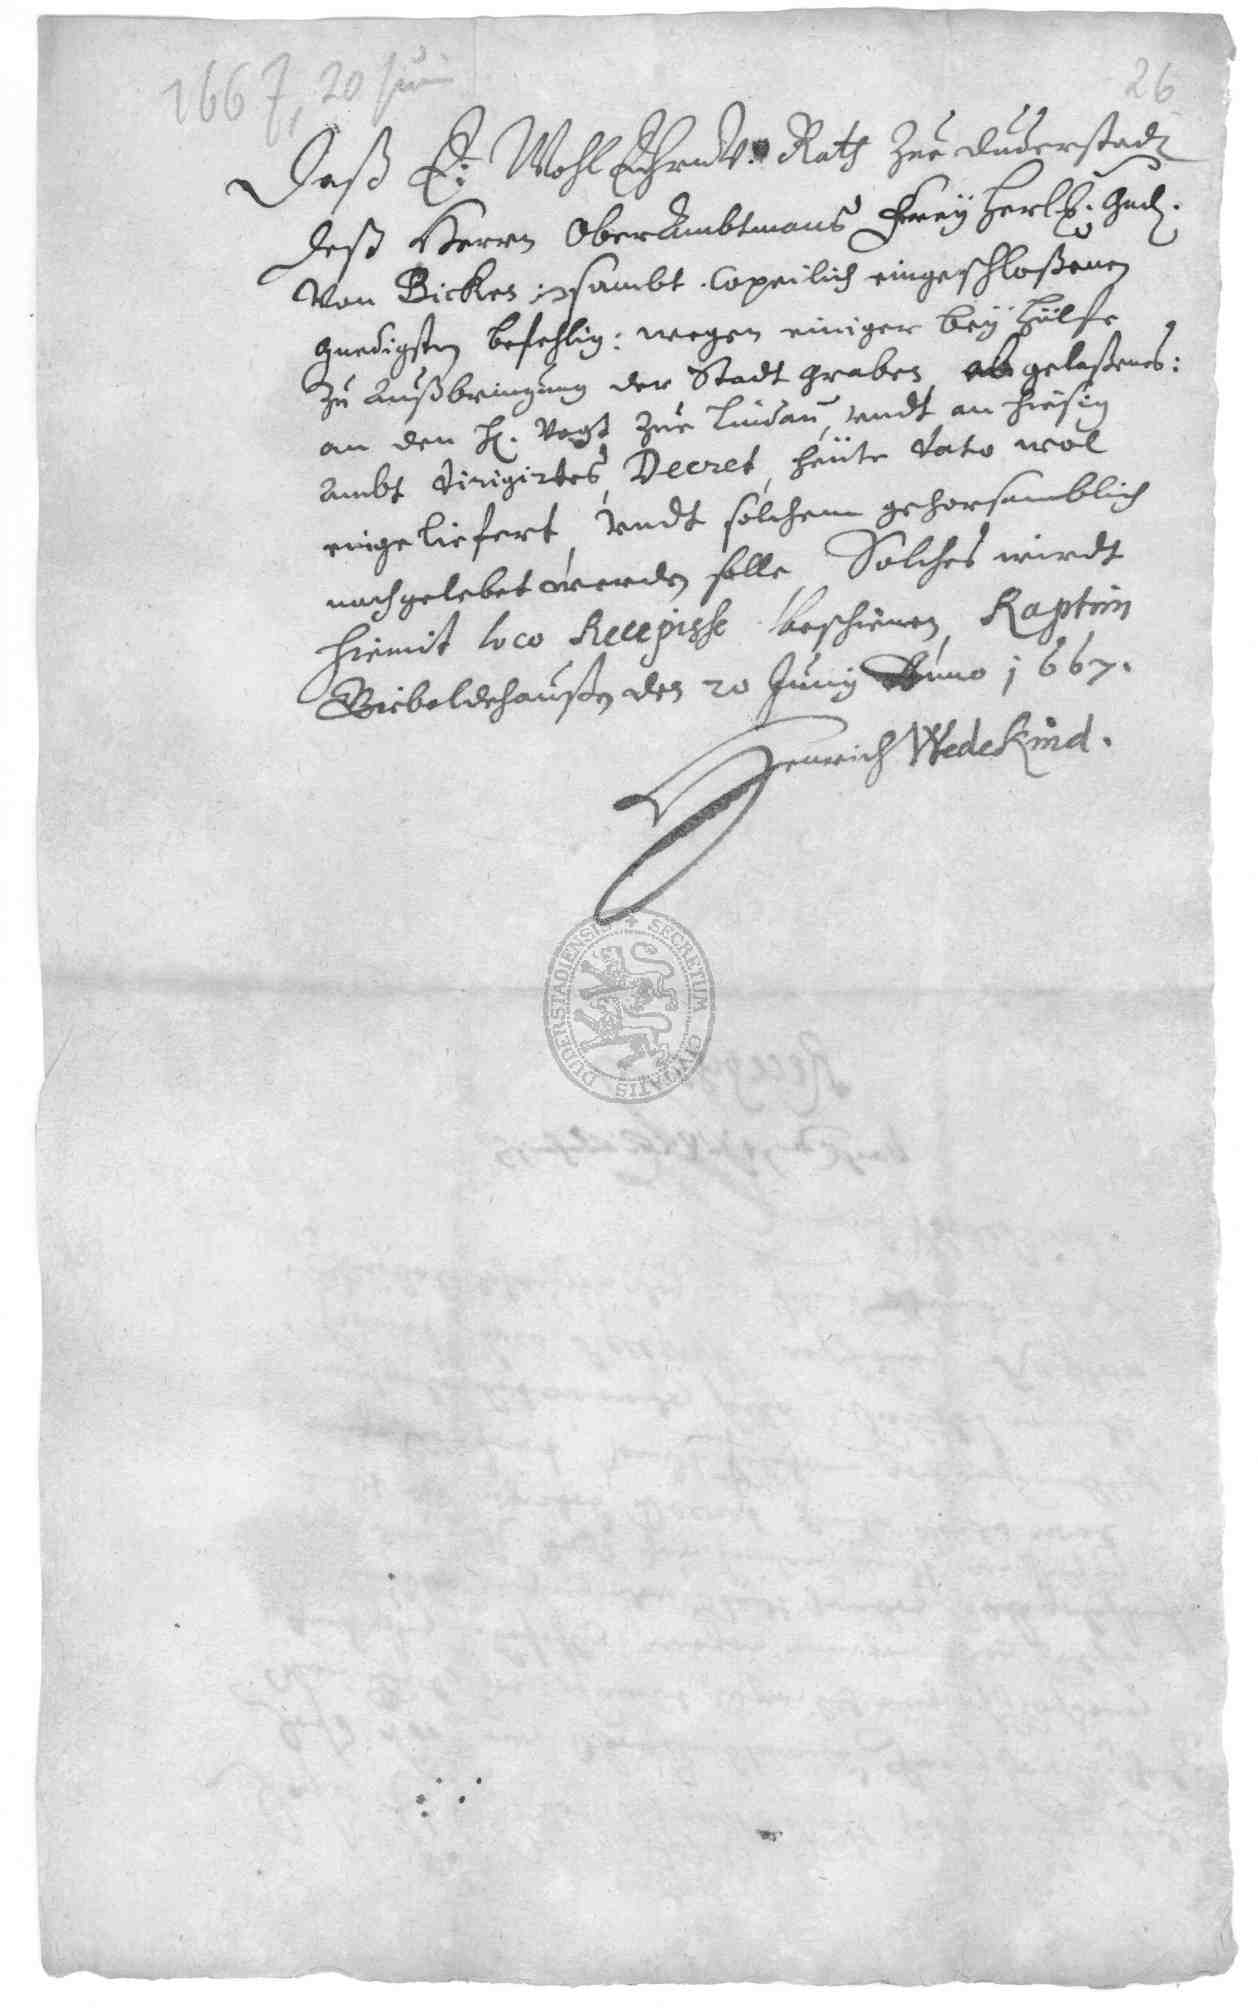 1667, 20 Juni
26
Daß E: Wohl Ehrnv: Rath Zue Duderstadt
deß Herrn OberAmbtmans Frey Herl: Gnd.
Von Bicken sambt Copeilich eingeschloßenen
gnedigsten befehlig: wegen einiger beyhülfe
zu Außbringung der Stadt graben, ab gelaßenes:
an den H. Vogt Zue Lindau, undt an hiesig
Ambt dirigirtes, Decret, heüte dato wol
eingeliefert, undt solchem gehorsamblich
nachgelebet werden solle, Solches wirdt
hiemit loco Recepisse bescheinen, Raptim
Gieboldehaußen den 20 Juny Anno 1667.
Henrich Wedekind.
SECRETUM CIVITATIS DUDERSTADIENSIS